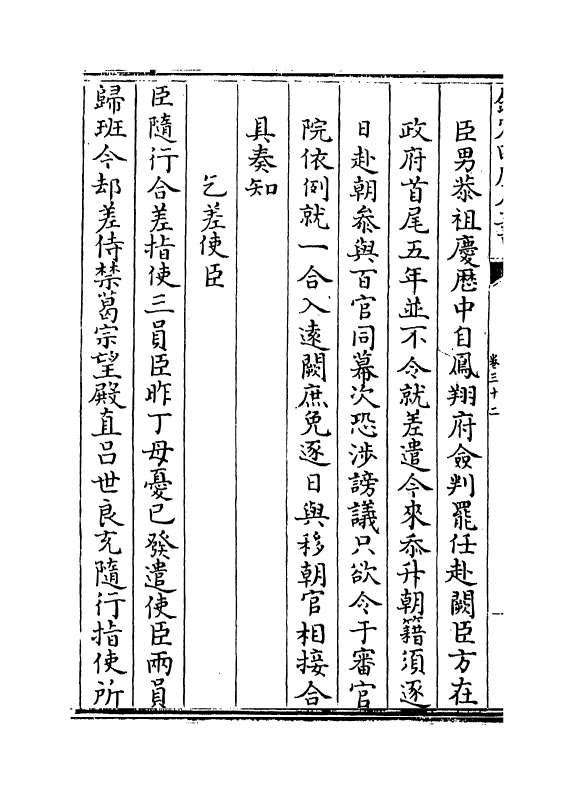 卷三十二
臣男恭祖慶厯中自鳳翔府僉判罷任赴闕臣方在
政府首尾五年並不令就差遣今來忝升朝籍須逐
日赴朝叅與百官同幕次恐涉謗議只欲令于審官
院依例就一合入逺闕庶免逐日與移朝官相接合
具奏知
乞差使臣
臣隨行合差指使三員臣昨丁母憂已發遣使臣兩員
歸班今却差侍禁葛宗望殿直吕世良充隨行指使所